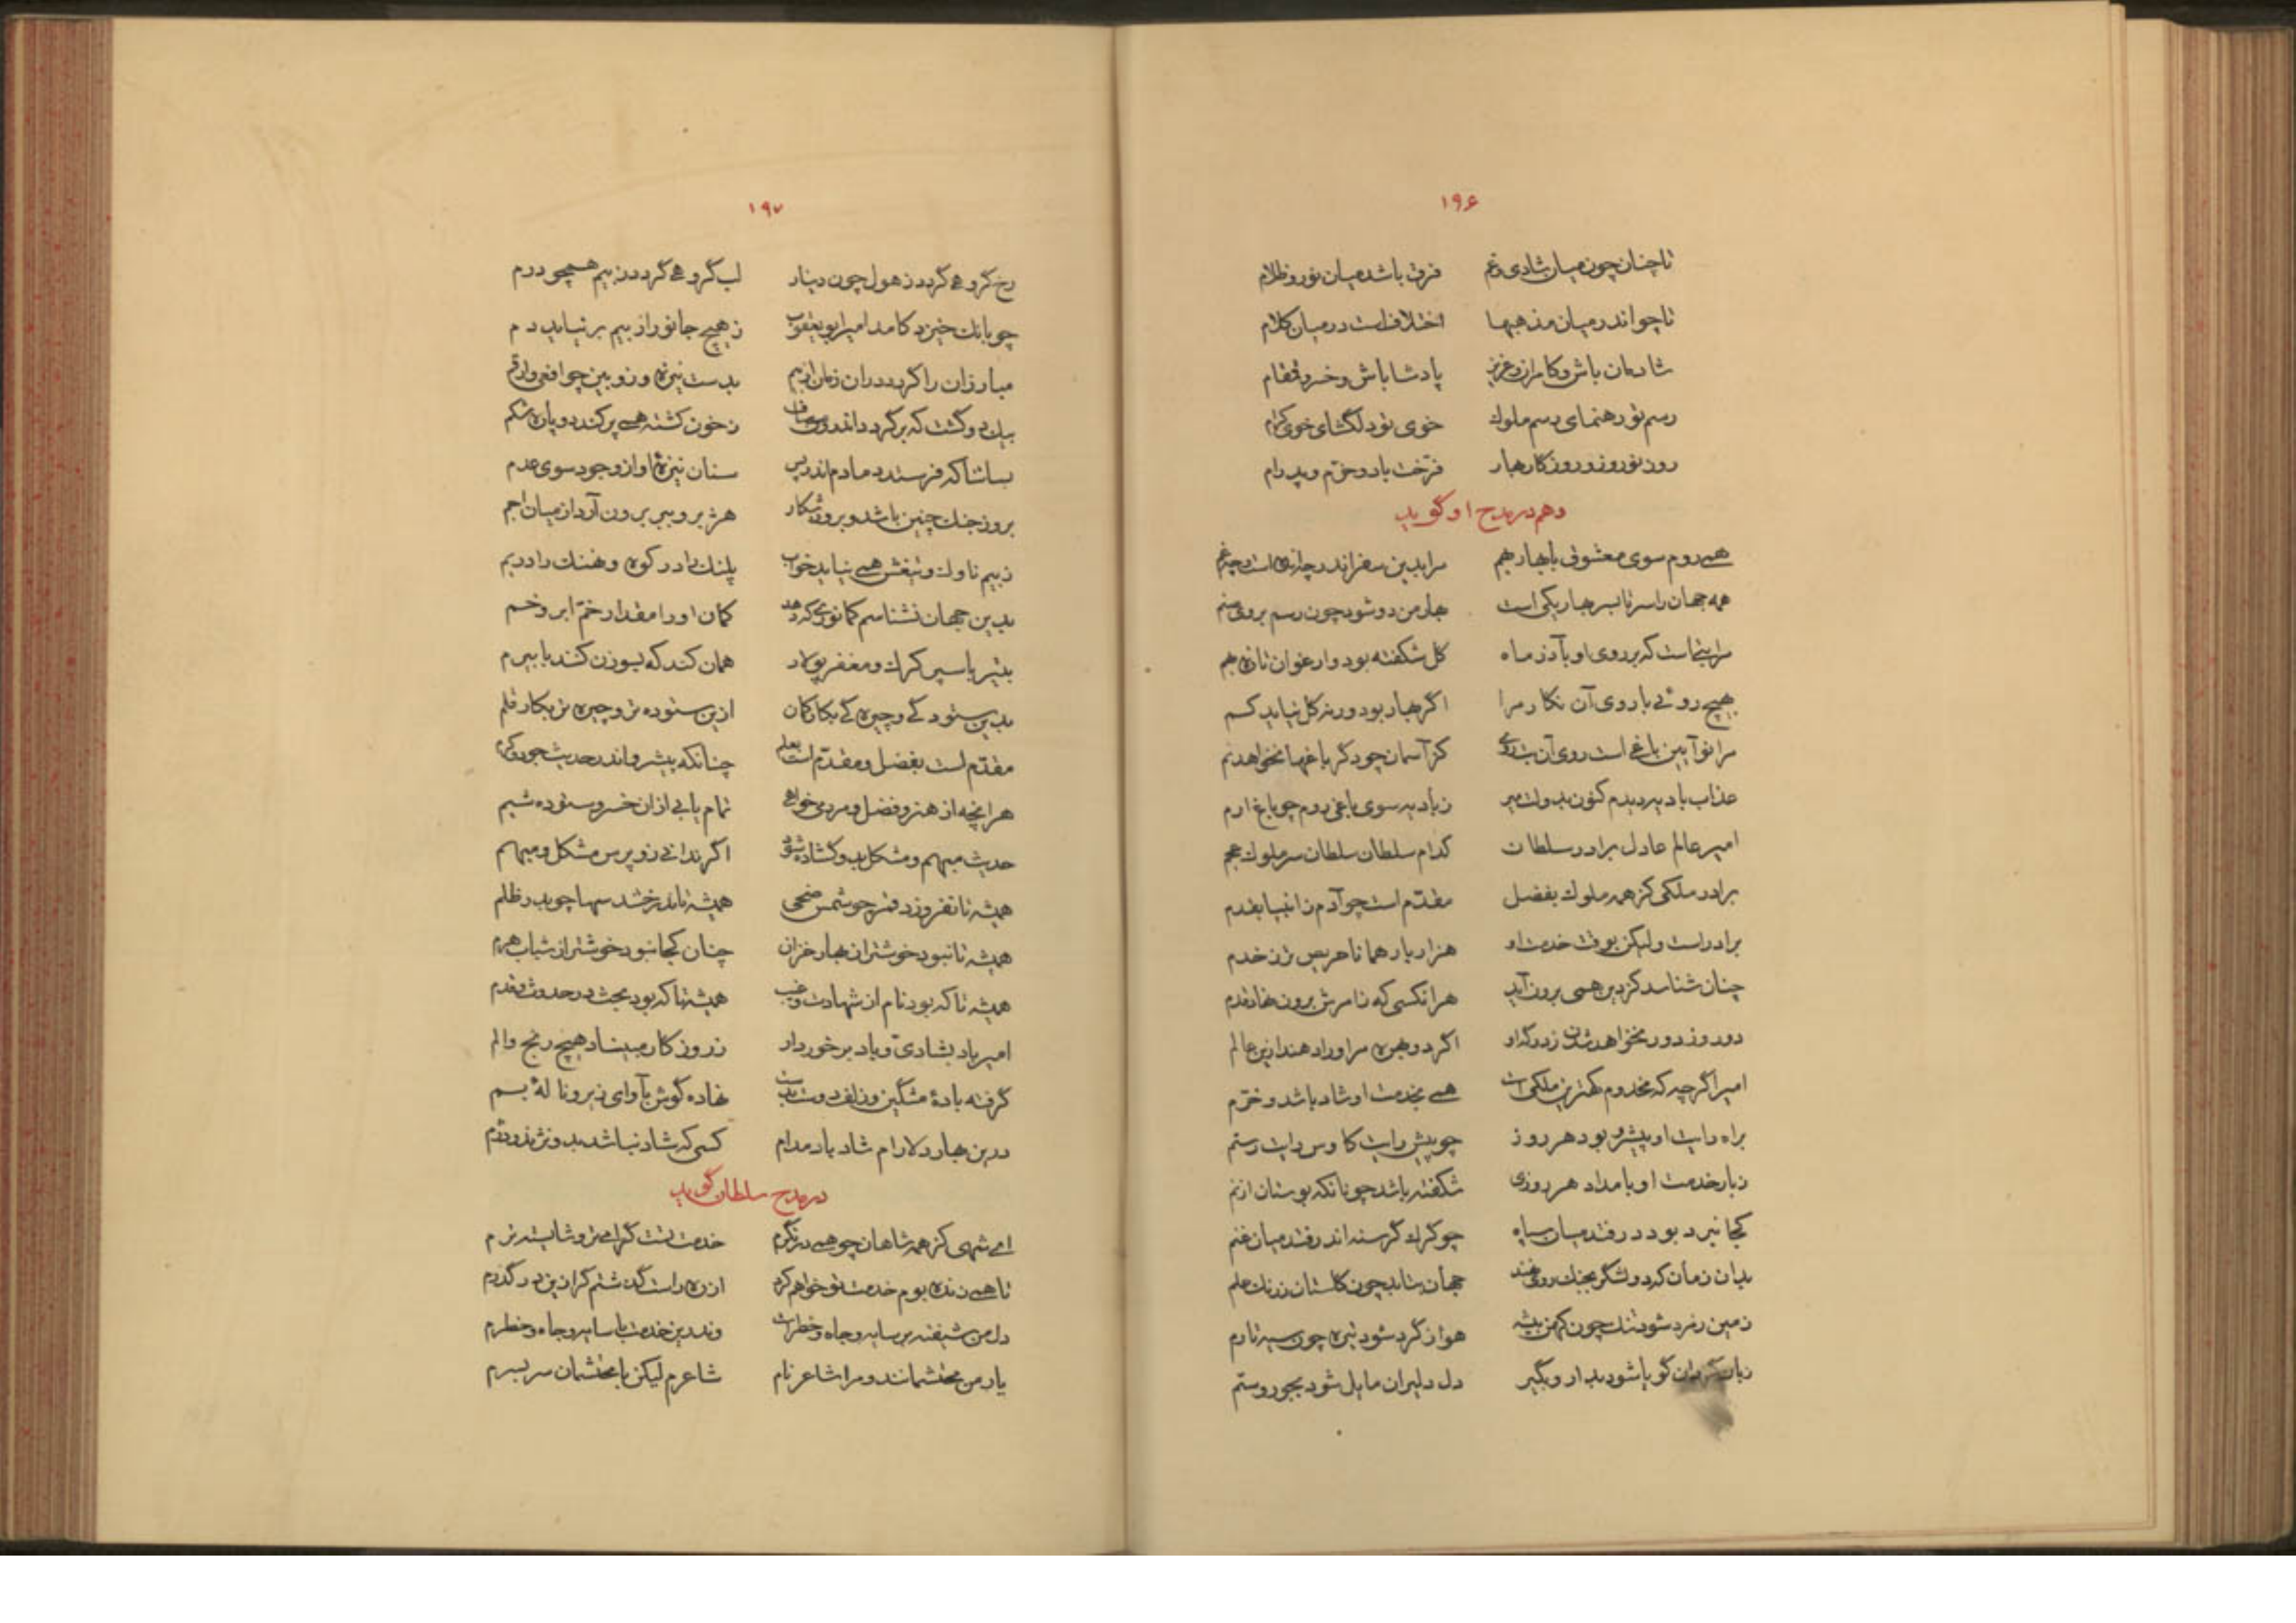 ۱۹۶
تا چنان چون میان شادی و غم فرق باشد میان نور و ظلام
تا چو اندر میان مذهبها اختلاف است در میان کلام
شادمان باش و کامران و عزیز پادشا باش و خسرو قمقام
رسم تو رهنمای رسم ملوک خوی تو دلگشای خوی کرام
روز نوروز و روزگار بهار فرخت باد و خرم و پدرام
وهم در مدح او گوید
همی روم سوی معشوق با بهار بهم مرا بدین سفر اندر چه انده است و چه غم
همه جهان را سر تا بسر بهار یکی است بهار من دو شود چون رسم بروی صنم
مرا بتی است که بر روی او بآذر ماه گل شکفته بود و ارغوان تازه بهم
بهیچ روئی با روی آن نگار مرا اگر بهار بود ور نه گل نیاید کم
مرا نو آیین باغی است روی آن بت کز آسمان چو دگر باغها نخواهد نم
عذاب بادیه دیدم کنون بدولت میر ز بادیه سوی باغی روم چو باغ ارم
امیر عالم عادل برادر سلطان کدام سلطان سلطان سر ملوک عجم
برادر ملکی کز همه ملوک بفضل مقدم است چو آدم ز انبیا بقدم
برادر است ولیکن بوقت خدمت او هزار بار همانا حریص تر ز خدم
چنان شناسد کز دین همی برون آید هر آنکسی که ز امرش برون نهاد قدم
دو روز دور نخواهد شدن ز درگه او اگر دو بهره مر او را دهند ازین عالم
امیر اگر چه که مخدوم کهترین ملکی است همی بخدمت او شاد باشد و خرم
براه رایت او پیشرو بود هر روز چو پیش رایت کاوس رایت رستم
ز بار خدمت او بامداد هر روزی شکفته باشد چونانکه بوستان از نم
کجا نبرد بود در رفتد میان سپاه چو گرگ گرسنه اندر فتد میان غنم
بدان زمان که دو لشگر بجنگ روی نهند جهان نماید چون گلستان ز رنگ علم
زمین ز مرد شود تنگ چون کهن بیشه هوا ز گرد شود تیره چون سیه تارم
زبان گردان گویا شود بدار و بگیر دل دلیران مایل شود بجور و ستم
۱۹۷
رخ گروهی گردد ز هول چون دینار لب گروهی گردد ز بیم همچو درم
چو بانگ خیزد کامد امیر ابو یعقوب ز هیچ جانور از بیم بر نیاید دم
مبارزان را گردد در آن زمان از بیم بدست نیزه و زوبین چو افعی و ارقم
بیک دو گشت که بر گردد اندرون مصاف ز خون کشته همی پر کند دو پاره شکم
بسا شها که فرستد دمادم اندر پس سنان نیزه او از وجود سوی عدم
بروز جنگ چنین باشد و بروز شکار هژبر و ببر برون آرد از میان اجم
ز بیم ناوک و تیغش همی نیاید خواب پلنگ را در کوه و نهنگ را در یم
بدین جهان نشناسم کمانوری که دهد کمان او را مقدار خم ابرو خم
بتیر با سپر کرگ و مغفر پولاد همان کند که بسوزن کنند با بیرم
بدین ستود کی و چیره کی بکار کمان ازین ستوده تر و چیره تر بکار قلم
مقدم است بفضل و مقدم است بعلم چنانکه پیشرو اندر حدیث جود و کرم
هر آنچه از هنر و فضل و مردمی خواهی تمام یابی از آن خسرو ستوده شیم
حدیث مبهم و مشکل بدو گشاده شود اگر ندانی زو پرس مشکل و مبهم
همیشه تا نفروزد قمر چو شمس ضحی همیشه تا ندرخشد سها چو بدر ظلم
همیشه تا نبود خوشتر از بهار خزان چنان کجا نبود خوشتر از شباب هرم
همیشه تا که بود نام از شهادت و غیب همیشه تا که بود بحث در حدوث و قدم
امیر باد بشادی و باد برخوردار ز روزگار مبیناد هیچ رنج و الم
گرفته باده مشگین و زلف دوست بدست نهاده گوش بآوای زیر و ناله بم
درین بهار دلارام شاد باد مدام کسی که شاد نباشد بدو نژند و دژم
در مدح سلطان گوید
ای شهی کز همه شاهان چو همی در نگرم خدمت تست گرامی تر و شایسته ترم
تا همی زنده بوم خدمت تو خواهم کرد از ره راست گذشتم گر ازین در گذرم
دل من شیفته بر سایه و جاه و خطر است وندرین خدمت با سایه و جاه و خطرم
یار من محتشمانند و مرا شاعر نام شاعرم لیکن با محتشمان سر بسرم